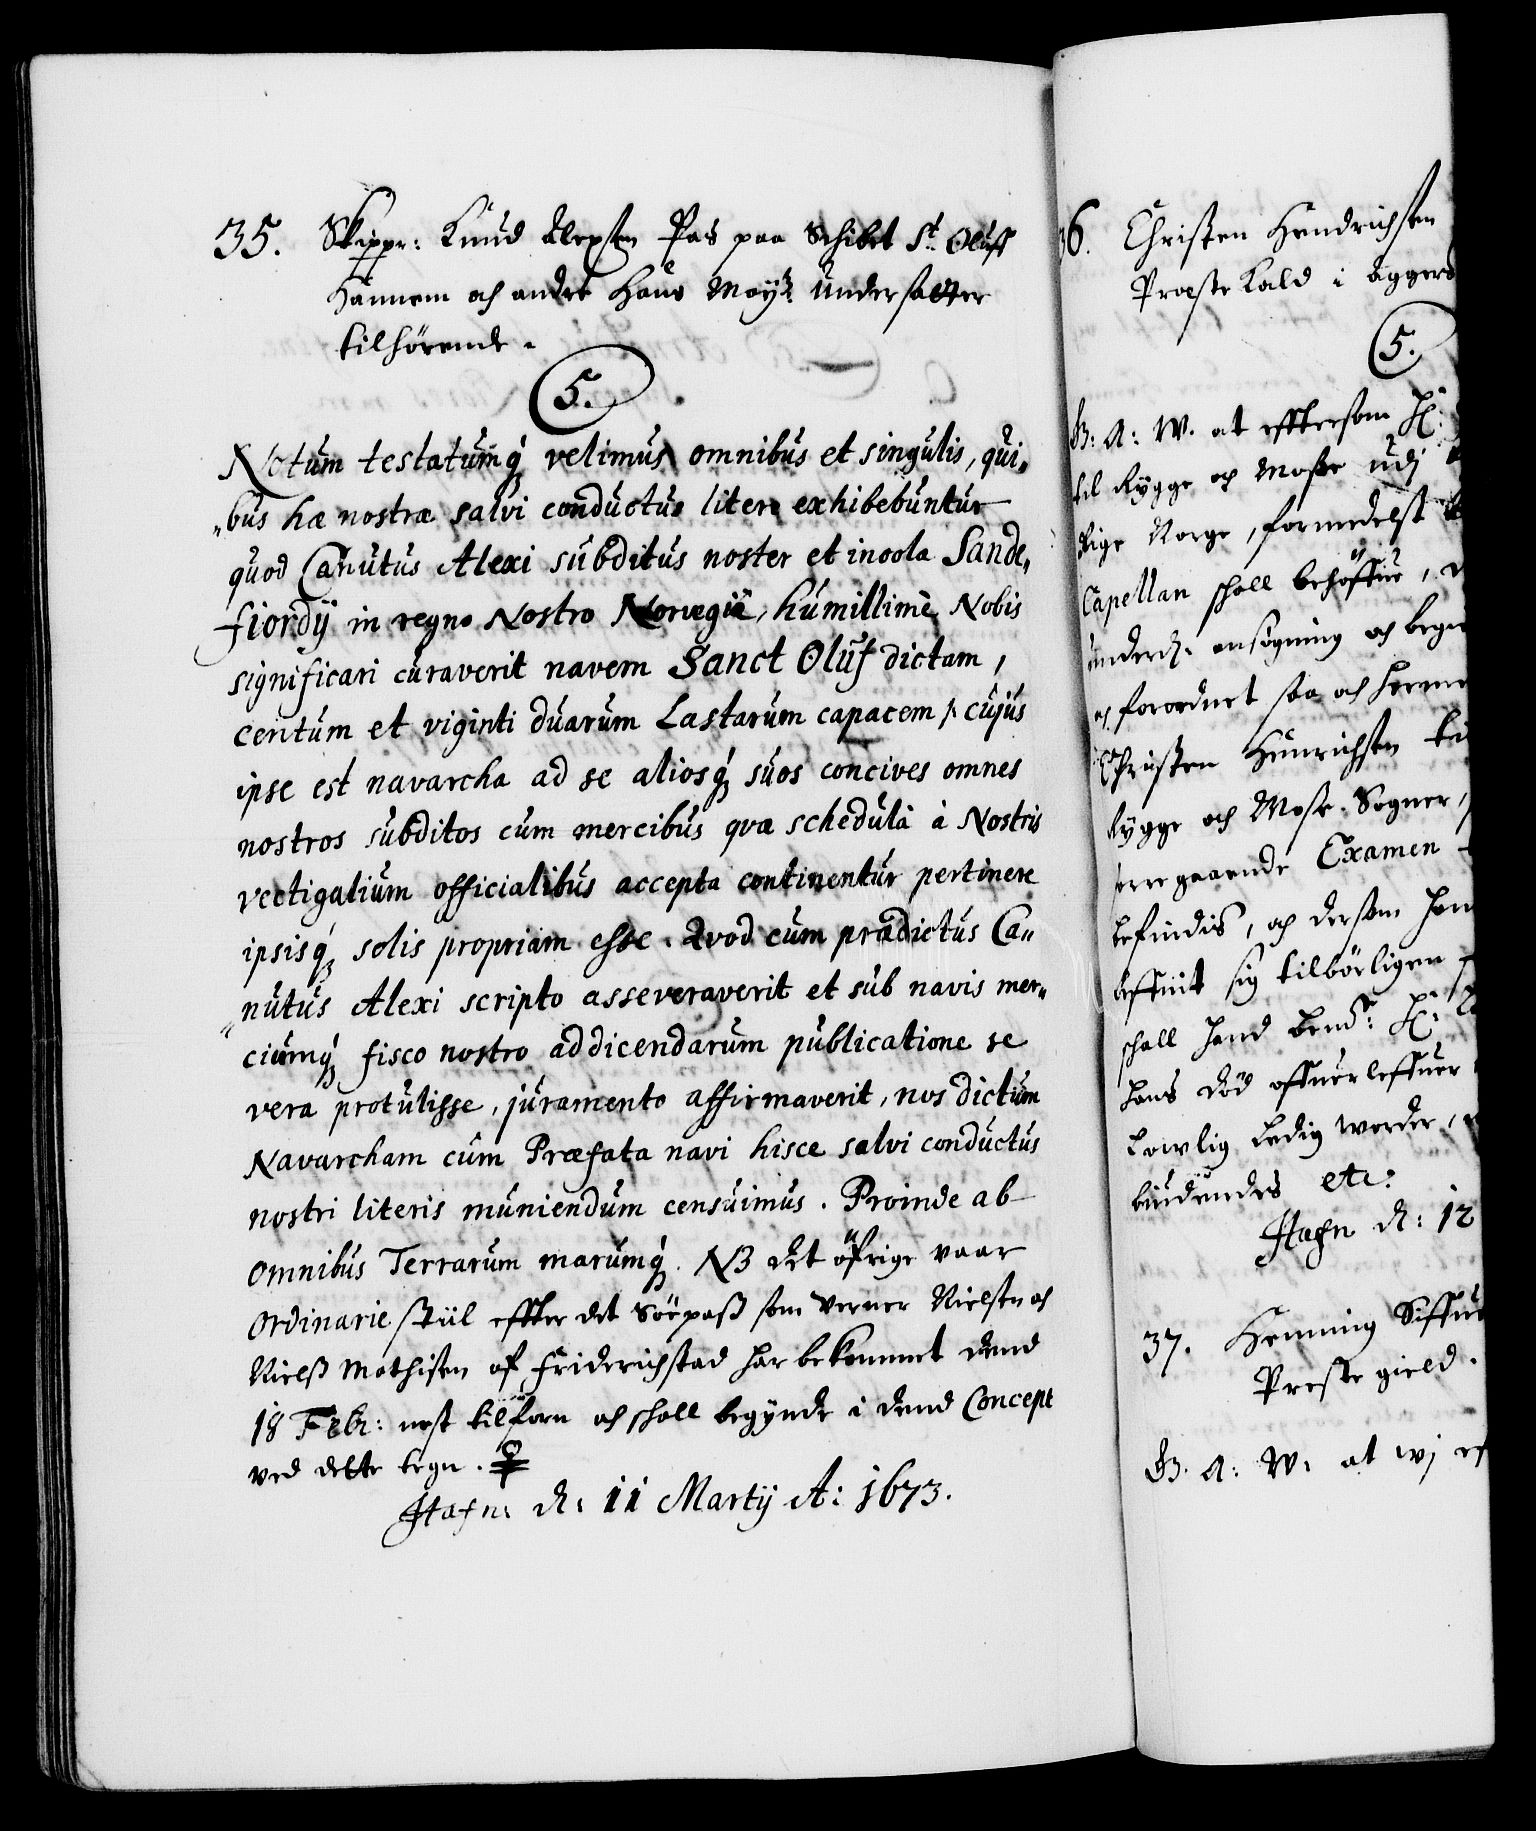 35. Skipper: Knud Alexsen Pas paa Schibet St. Oluff
Hannem och andre Hans Mayts undersaatter
tilhörende.
5.
Notum testatumq́ velimus omnibus et singulis, qui„
„bus hæ nostræ salvi conductus literæ exhibebuntur
quod Canutus Alexi subditus noster et incola Sande„
fiordij in regno Nostro Norvegiæ, humillimè Nobis
significari curaverit navem Sanct Oluf dictam,
centum et viginti duarum Lastarum capacem, cujus
ipse est navarcha ad se aliosq́ suos concives omnes
nostros subditos cum mercibus qvæ schedulâ à Nostris
vectigalium officialibus accepta continentur pertinere
ipsisq́ solis propriam esse. Qvod cum prædictus Ca„
„nutus Alexi scripto asseveraverit et sub navis mer„
ciumq́ fisco nostro addicendarum publicatione se
vera protulisse, juramento affirmaverit, nos dictum
Navarcham cum Præfata navi hisce salvi conductus
nostri literis muniendum censuimus. Proinde ab
omnibus Terrarum mariumq́. NB det öfrige vaar
ordinarie stiil effter det Söepass som Verner Nielsen och
Nielss Mathisen af Friderichstad har bekommet dend
18 Febr: nest tilforn och schall begynde i dend Concept
ved dette tegn.
Hafn: d: 11 Martij A: 1673.
36. Christen Hendrichsen
Præste Kald i Aggers
5.
G: A: W. at effttersom H:
til Rygge och Mosse udj
Rige Norge, formedelst
Capellan schall behöffue,
underd. ansögning och beger
och forordnet saa och herme
Christen Hinrichsen til
Rygge och Moss Sogner,
forregaaende Examen
befindis, och dersom han
affuit sig tilbörligen
schall hand bend.
hans död offuerleffuer
Lovlig Ledig worder,
biudendes etc:
Hafn d: 12
37. Henning Siffue
Præste gield.
G. A: W: at wj ef